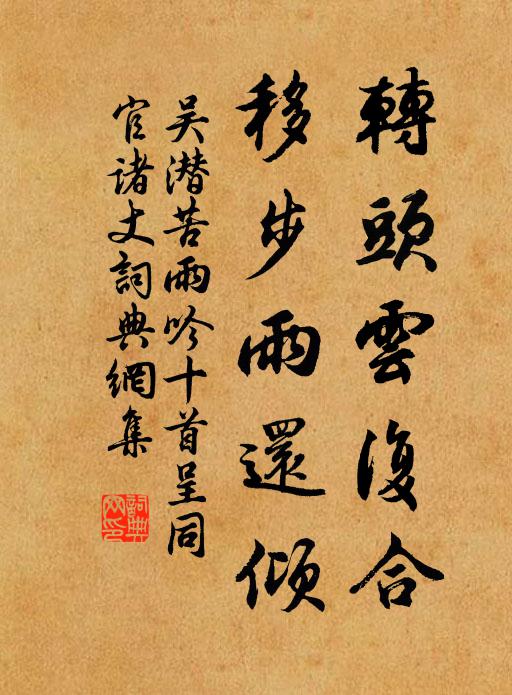 轉頭雲復合
移步雨還傾
吴潛苦雨吟十首呈同
官诸丈詞典網集
詞典网印